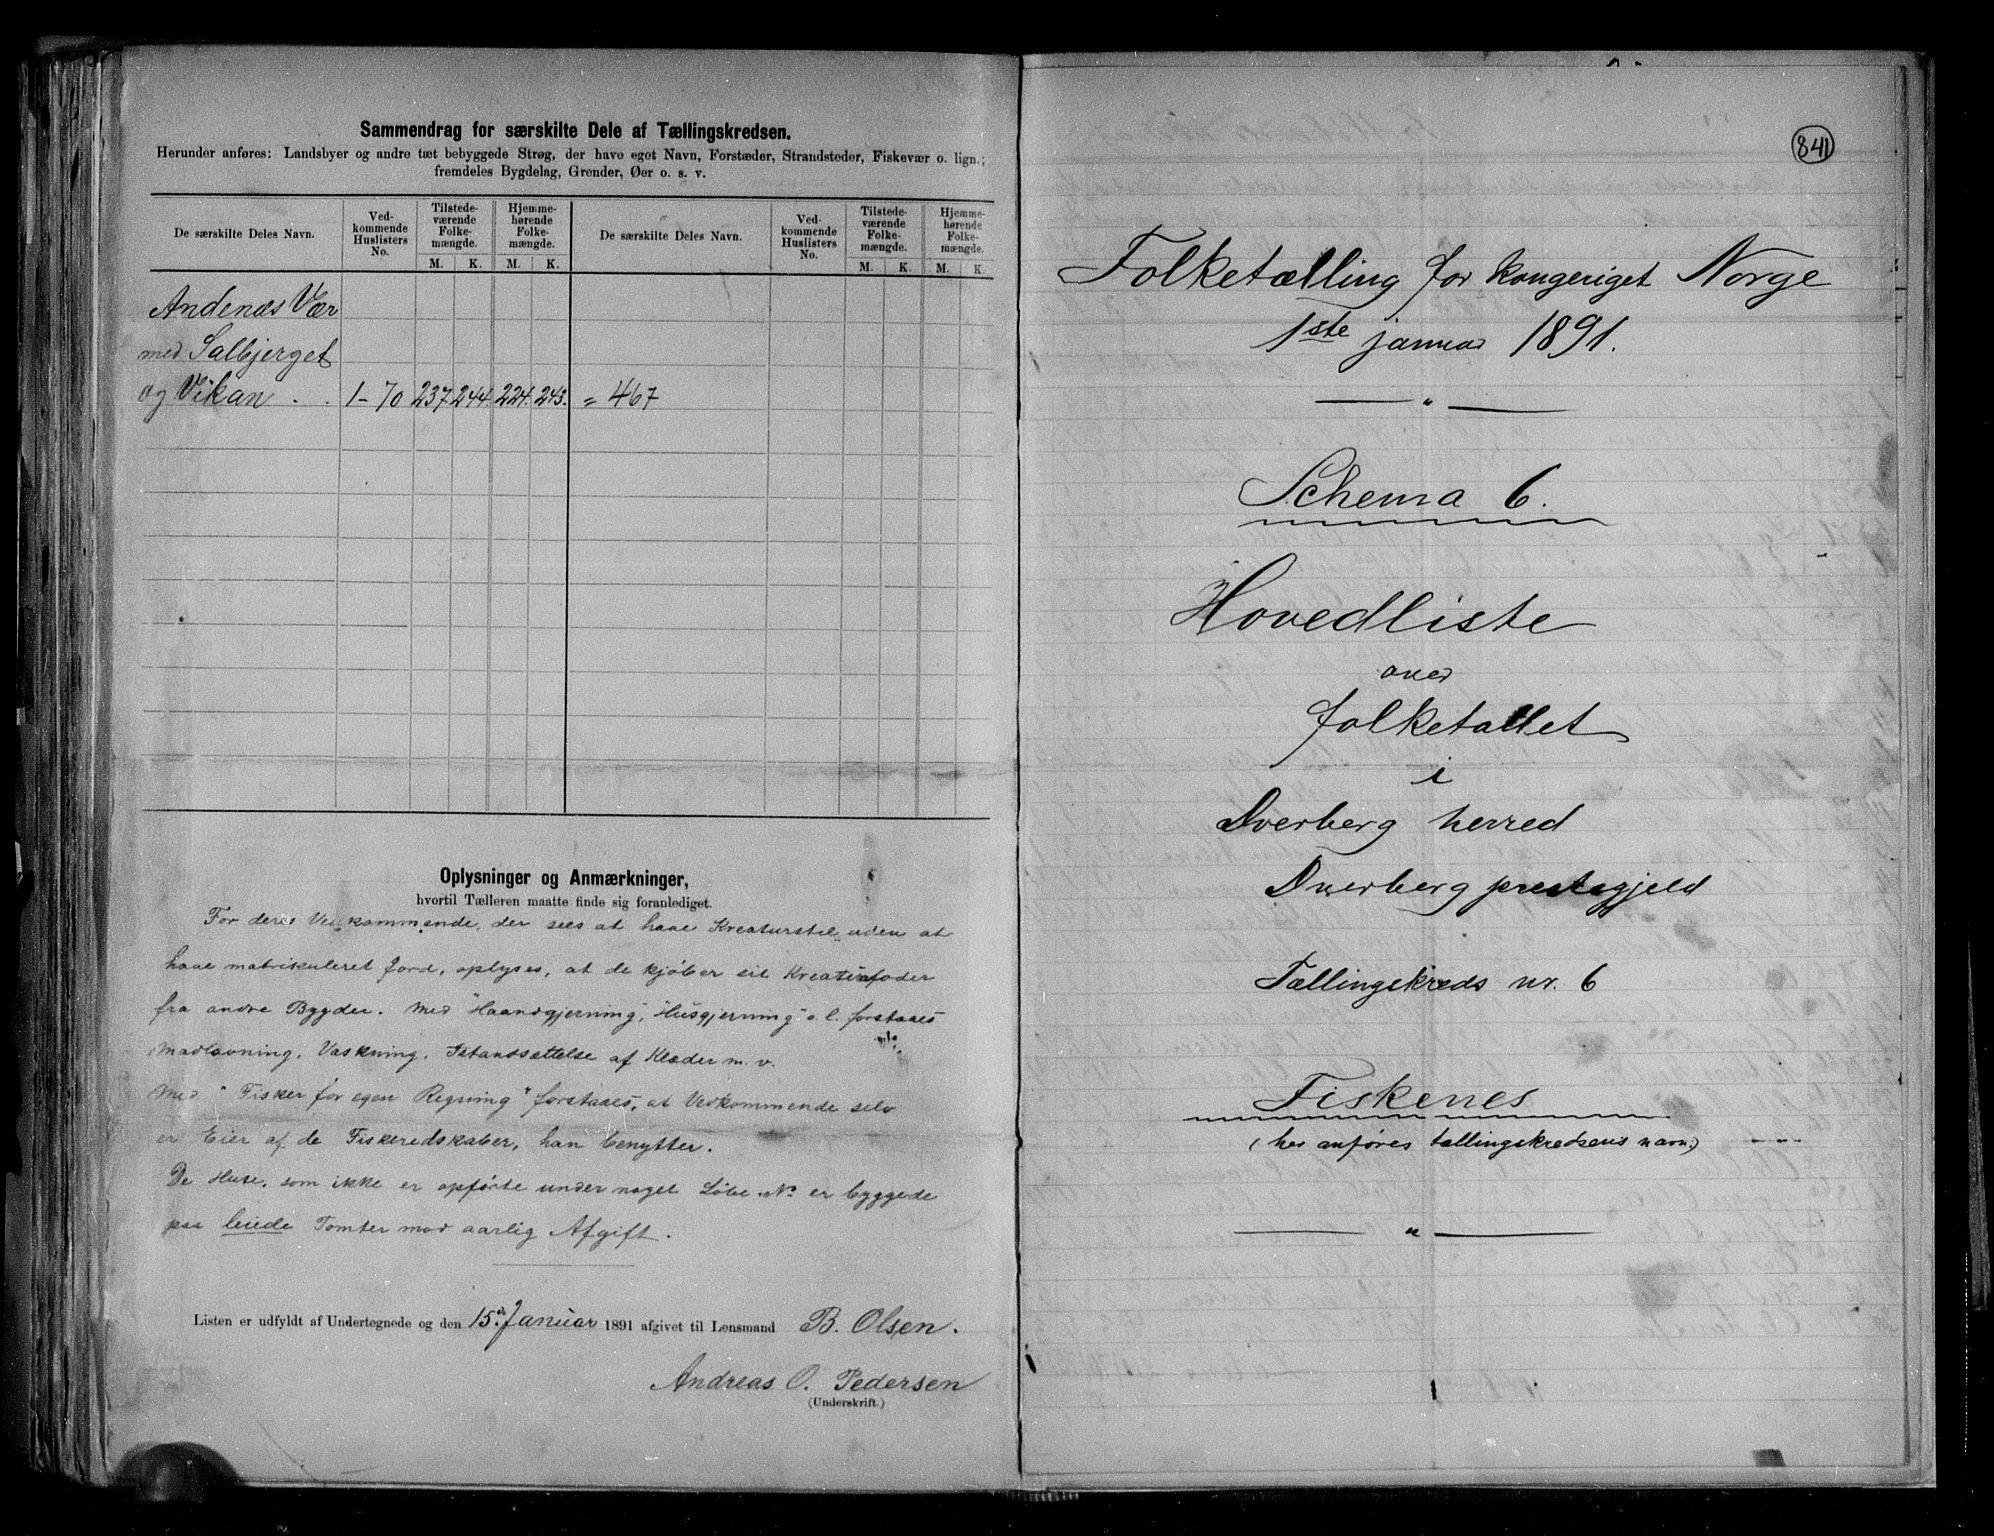 Sammendrag for særskilte Dele af Tællingskredsen.
Herunder anføres: Landsbyer og andre tæt bebyggede Strøg, der have eget Navn, Forstæder, Strandsteder, Fiskevær o. lign.;
fremdeles Bygdelag, Grender, Øer o. s. v.
De særskilte Deles Navn.
Ved-
kommende
Huslisters
No.
Tilstede-
værende
Folke-
mængde.
M. K.
Hjemme-
hørende
Folke-
mængde.
M. K.
De særskilte Deles Navn.
Ved-
kommende
Huslisters
No.
Tilstede-
værende
Folke-
mængde.
M. K.
Hjemme-
hørende
Folke-
mængde.
M. K
Andenæs Vær
med Salbjerget
og Vikan . . 1-70 237 244. 224. 243. = 467
Oplysninger og Anmærkninger,
hvortil Tælleren maatte finde sig foranlediget.
For deres Vedkommende, der sees at have Kreaturstel uden at
have matrikuleret Jord, oplyses, at de kjøber sit Kreaturfoder
fra andre Bygder. Med "Haandgjerning", "Husgjerning" o. l. forstaaes
Madlavning, Vaskning, Istandsættelse af Klæder m. v.
Med "Fisker for egen Regning" forstaaes, at Vedkommende selv
er Eier af de Fiskeredskaber, han benytter.
De Huse, som ikke er opførte under noget Løbe No er byggede
paa leiede Tomter mod aarlig Afgift.
Listen er udfyldt af Undertegnede og den 15d Januar 1891 afgivet til Lensmand B. Olsen.
Andreas O. Pedersen
(Underskrift.)
841
Folketælling for kongeriget Norge
1ste januar 1891.
"
Schema 6.
Hovedliste
over
folketallet
i
Dverberg herred
Dverberg prestegjeld
Tællingskreds nr. 6
Fiskenes
(her anføres tællingskredsens navn.)
"